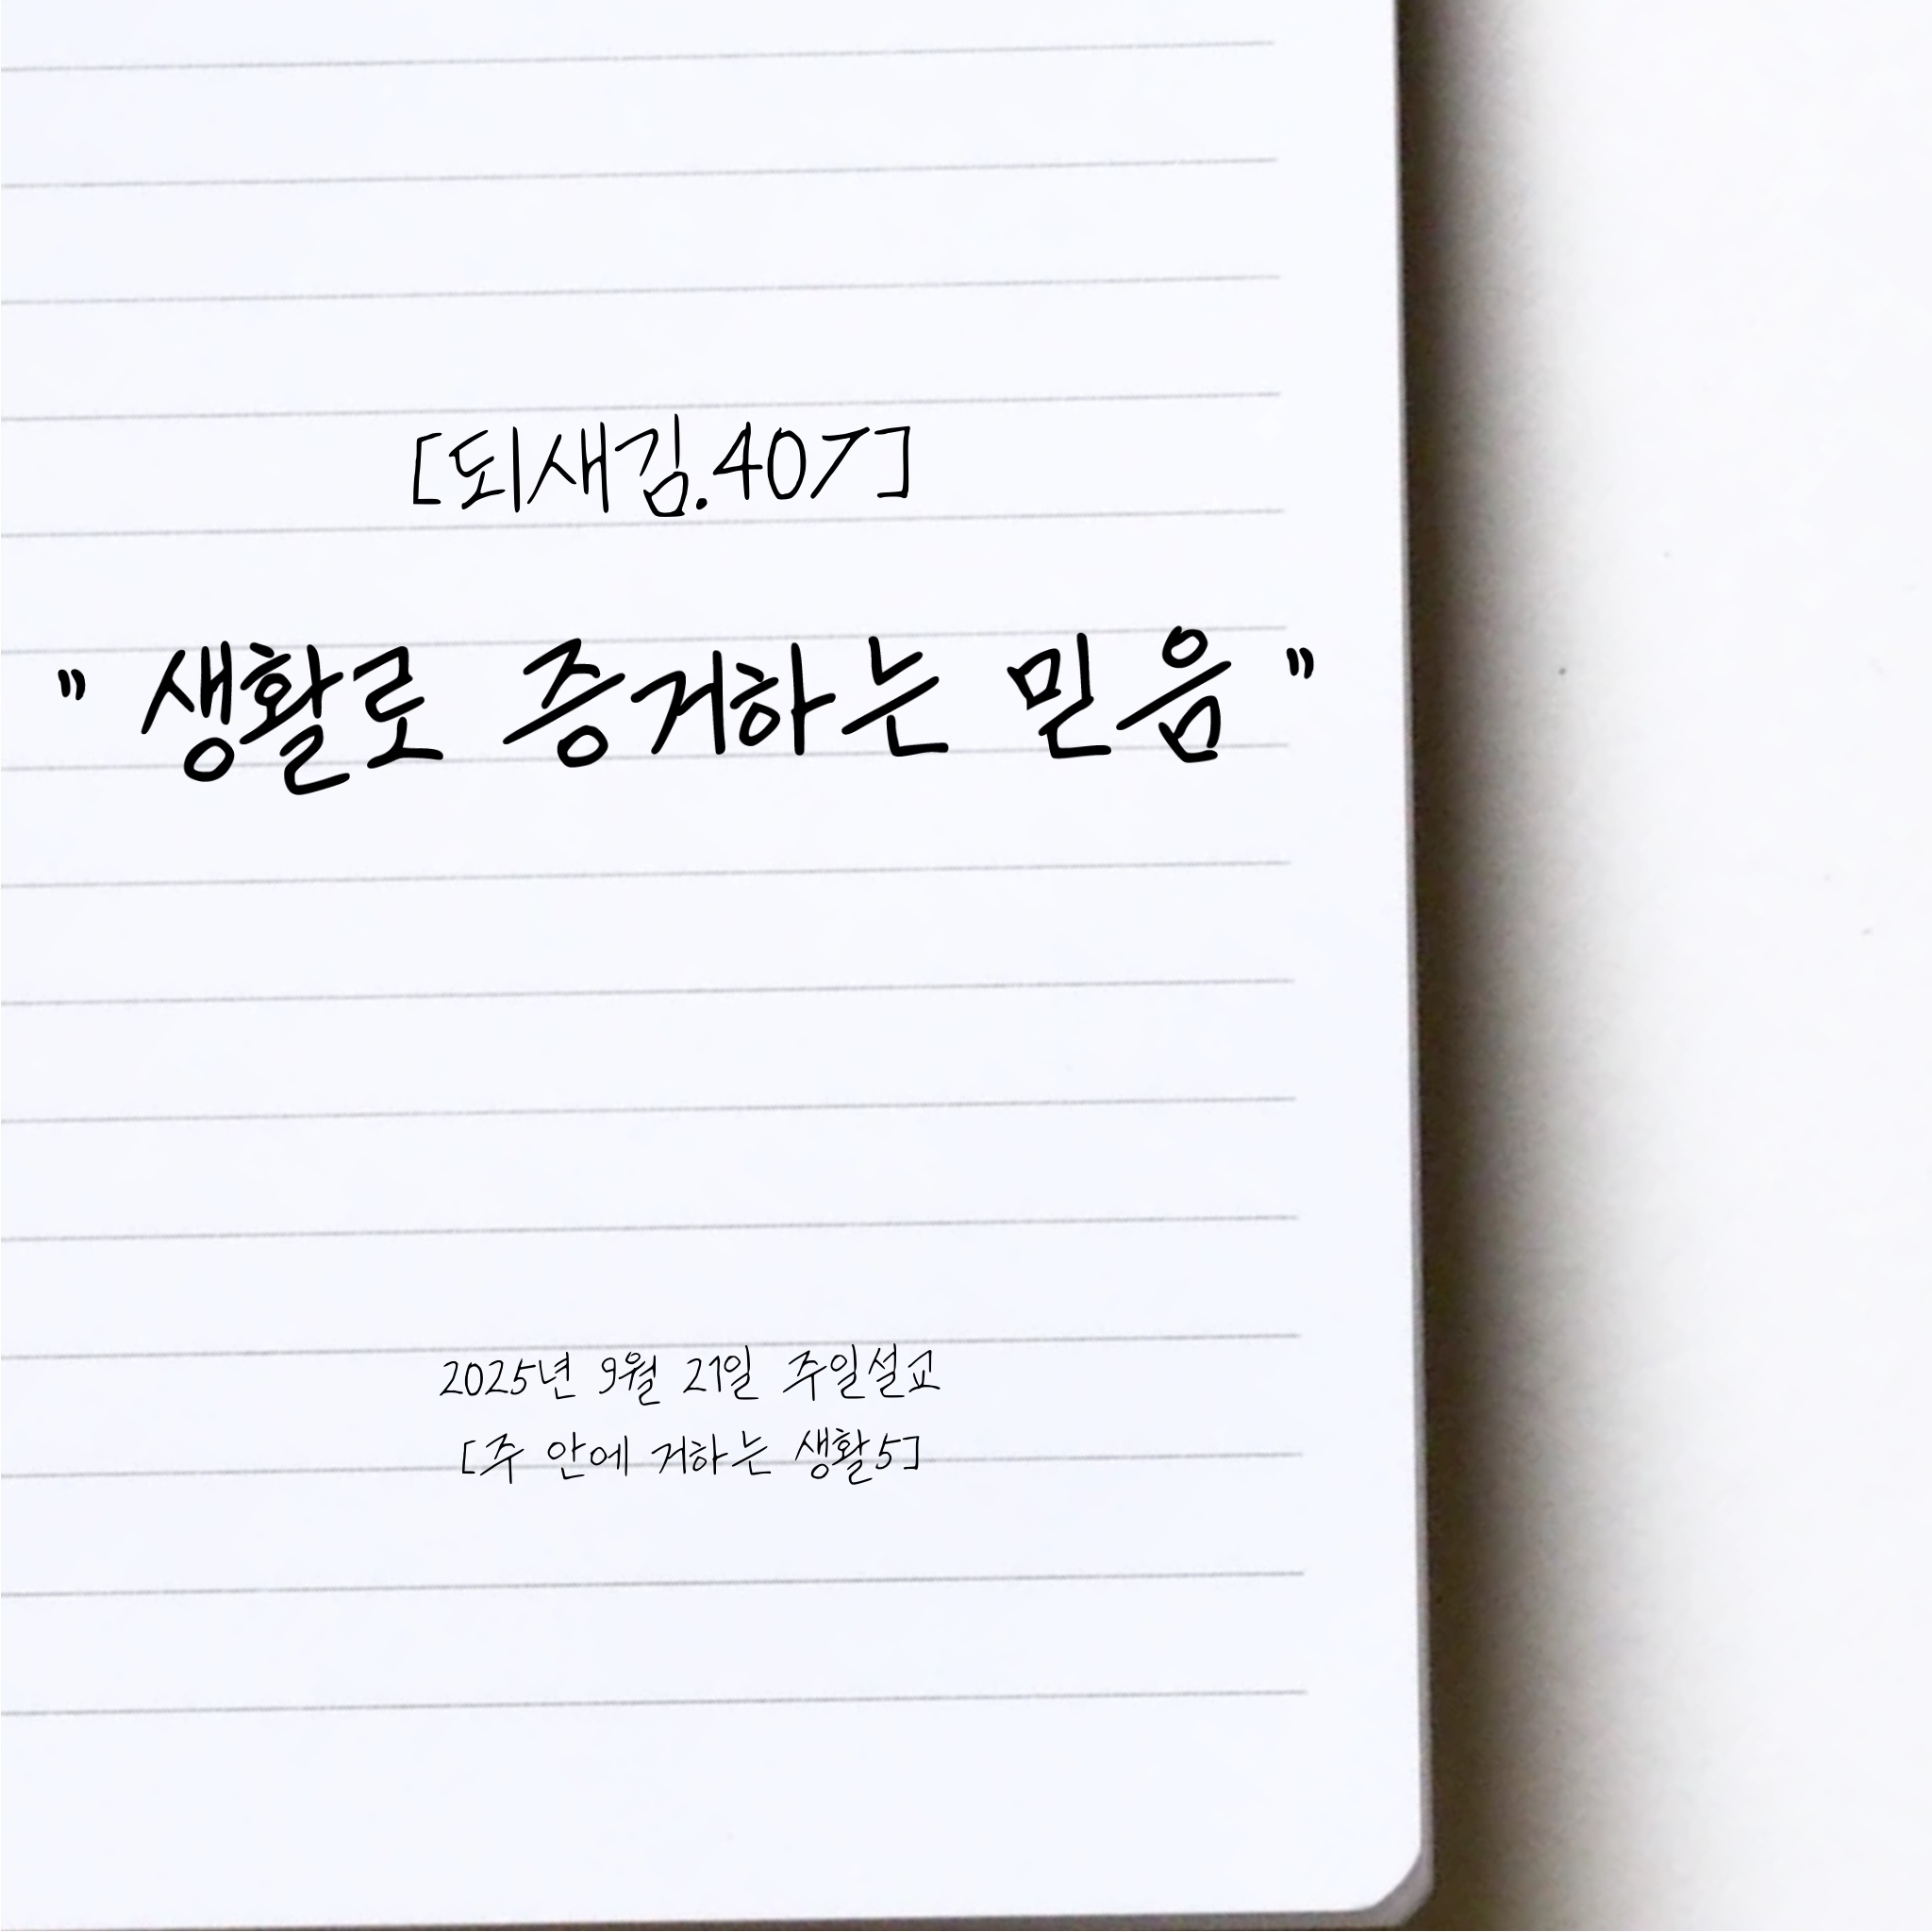 [되새김.407]
" 생활로 증거하는 믿음 "
2025년 9월 21일 주일설교
[주 안에 거하는 생활5]